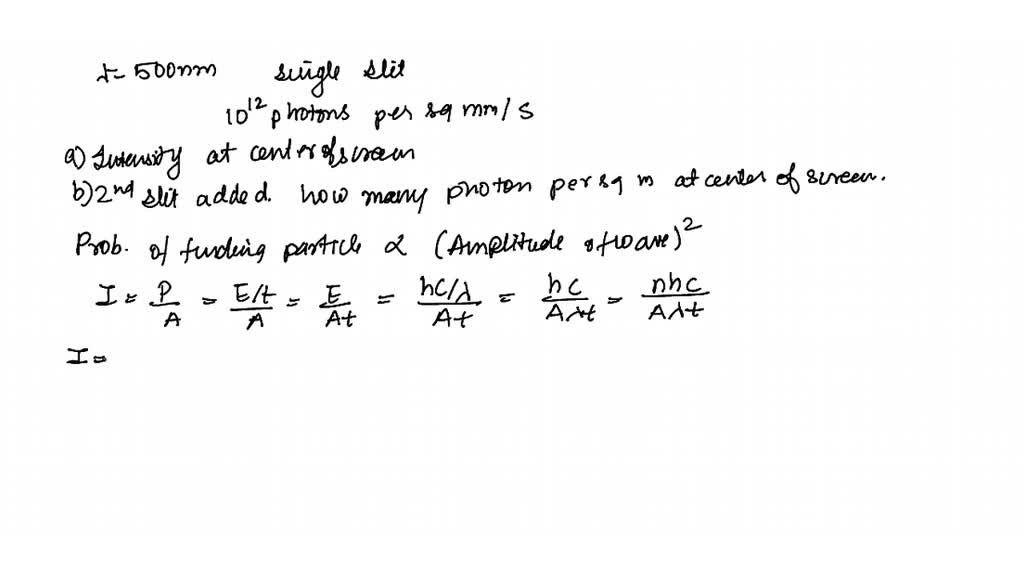 λ= 500nm single slit
10^12 photons per sq mm/s
a) Intensity at center of screen
b) 2nd slit added. how many photon per sq m at center of screen.
Prob. of finding particle α (Amplitude of wave)^2
I = P/A = E/t/A = E/At = hc/λ/At = hc/Aλt = nhc/Aλt
I =